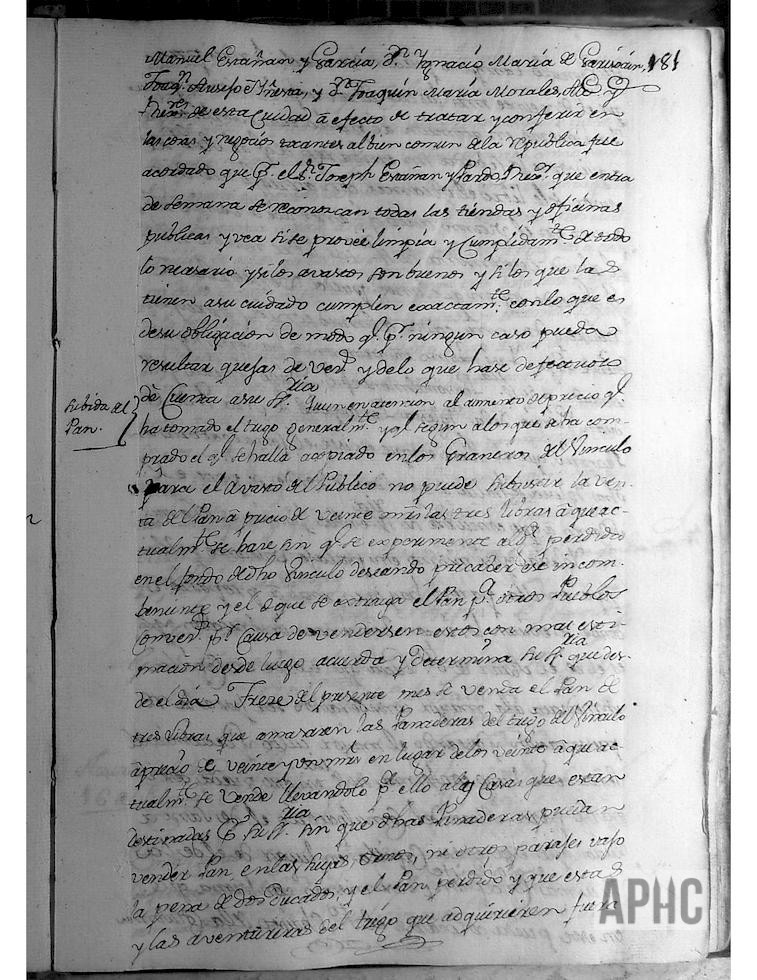 Manuel Estañan y Garcia, Dn. Ygnacio Maria de 181
Joaqn. Ynesta, y Dn. Joaquin Maria Morales, y
de esta Ciudad á efecto de tratar y conferir en
las cosas y negocios tocantes al bien comun de la republica fue
acordado que pr. el Sr. Joseph Estañan y Pardo que entra
de Semana se reconozcan todas las tiendas y oficinas
publicas y vea si se provée limpia y Cumplidamte. de todo
lo necesario y si los avastos son buenos y si los que la
tienen a su cuidado cumplen exactamte. con lo que es
de su obligacion de modo qe. pr. ningun caso pueda
resultar quejas de y de lo que hase defectuoso
dé Cuenta a su Sria. en atencion al aumento de precio qe.
Subida del
Pan.
ha tomado el trigo generalmte. y qe. segun a los que se ha com-
prado el qe. se halla acopiado en los Graneros del Vinculo
para el Avasto del Publico no puede la ven-
ta del Pan á precio de veinte mrs. las tres libras á que ac-
tualmte. se hace sin qe. se experimente perdida
en el fondo de dho Vinculo deseando precaber ese incom-
beniente y el de que se extraiga el Pan pa. otros Pueblos
pr. Causa de vendersen estos con mas esti-
macion desde luego acuerda y determina su Sria. que des-
de el dia Treze del presente mes se venda el Pan de
tres libras que amasaren las Panaderas del trigo del Vinculo
á precio de veinte y un mrs. en lugar de los veinte á que ac-
tualmte. se vende llevandolo pa. ello a las Casas que estan
destinadas pr. su Sria. sin que dhas Panaderas puedan
vender Pan en las suyas, ni otros parajes vajo
la pena de dos Ducados, y el Pan perdido y que estas
y las aventureras del trigo que adquirieren fuera
APHC